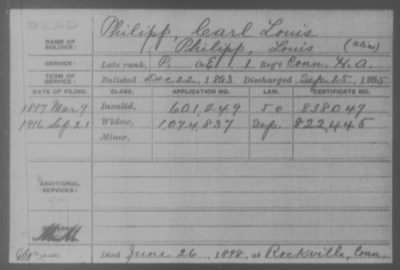 DEAD
Philipp, Carl Louis
NAME OF SOLDIER: Philipp, Louis (alias)
SERVICE: Late rank, P. Co E 1 Reg't Conn. H. A.
TERM OF SERVICE: Enlisted Dec 22, 1863 Discharged Sep. 25, 1865
DATE OF FILING. CLASS. APPLICATION NO. LAW. CERTIFICATE NO.
1887 Mar 9 Invalid, 601,249 838047
1916 Sep. 21 Widow, 1,074,837 Sep. 822,445
Minor,
ADDITIONAL SERVICES:
Died June 26, 1898, at Rockville, Conn.